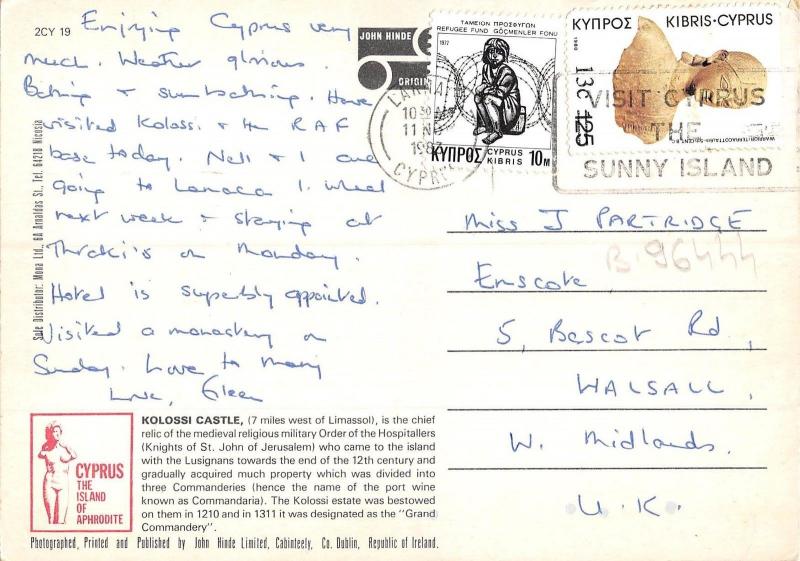 2CY 19
Enjoying Cyprus very
much. Weather glorious.
Bathing & sunbathing. Have
visited Kolossi & the RAF
base today. Nell & I are
going to Lanaca 1. wheel
next week & staying at
Thraki's on Monday.
Hotel is superbly appointed.
Visited a monastery on
Sunday. Love to many
Love, Eileen
Sole Distributor: Mona Ltd., 6A Arnaldas St., Tel. 64218 Nicosia
JOHN HINDE
ORIGIN
ΤΑΜΕΙΟΝ ΠΡΟΣΦΥΓΩΝ
REFUGEE FUND GÖÇMENLER FONU
1977
ΚΥΠΡΟΣ CYPRUS KIBRIS 10M
ΚΥΠΡΟΣ KIBRIS·CYPRUS
1980
125
10 30
CYPRUS
VISIT CYPRUS
THE
SUNNY ISLAND
Miss J PARTRIDGE
B.96444
Emscote,
5, Bescot Rd,
WALSALL,
W. Midlands.
U.K.
CYPRUS
THE
ISLAND
OF
APHRODITE
KOLOSSI CASTLE, (7 miles west of Limassol), is the chief
relic of the medieval religious military Order of the Hospitallers
(Knights of St. John of Jerusalem) who came to the island
with the Lusignans towards the end of the 12th century and
gradually acquired much property which was divided into
three Commanderies (hence the name of the port wine
known as Commandaria). The Kolossi estate was bestowed
on them in 1210 and in 1311 it was designated as the "Grand
Commandery".
Photographed, Printed and Published by John Hinde Limited, Cabinteely, Co. Dublin, Republic of Ireland.